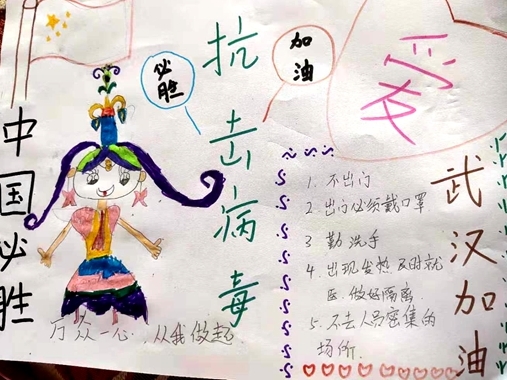 中国必胜
必胜
抗击病毒
加油
爱
1. 不出门
2. 出门必须戴口罩
3 勤洗手
4. 出现发热及时就
医.做好隔离
5. 不去人员密集的
场所.
武汉加油
万众一心,从我做起